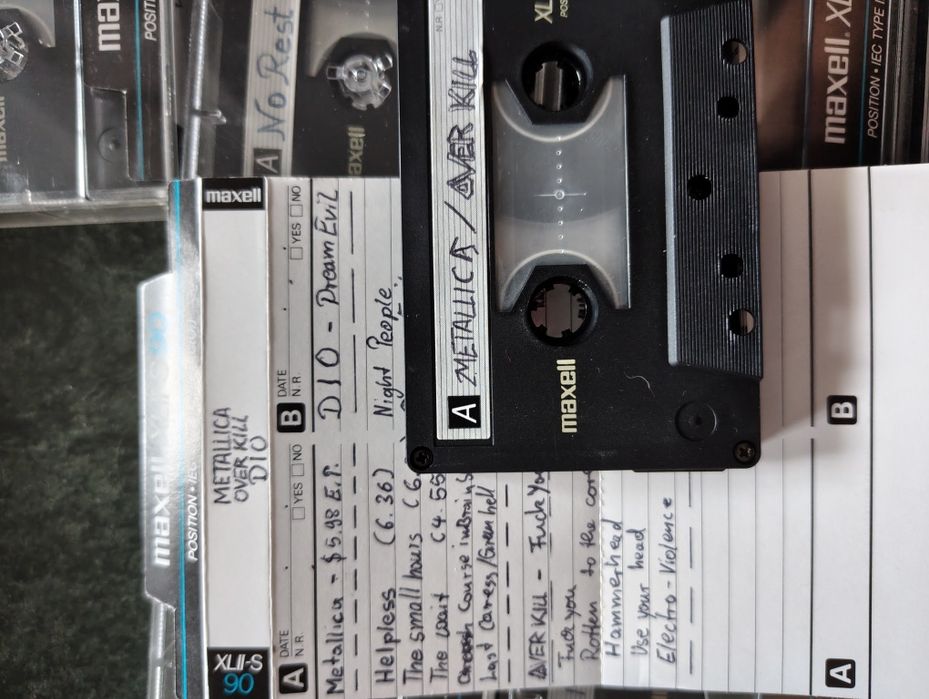 maxell
POSITION
A No Rest
maxell
maxell
maxell. XL
POSITION • IEC TYPE
XL
POS
N.R
A METALLICA / OVER KILL
maxell
maxell
POSITION • IEC
maxell
METALLICA
OVER KILL
DIO
XLII-S
90
A DATE
N.R. YES NO
Metallica - $5.98 E.P.
Helpless (6.36)
The small hours (6.
The wait (4.55
Crash Course in Brain S
Last Caress/Green hell
OVER KILL - Fuck You
Fuck you
Rotten to the core
Hammerhead
Use your head
Electro-Violence
B DATE
N.R. YES NO
DIO - Dream Evil
Night People
A
B